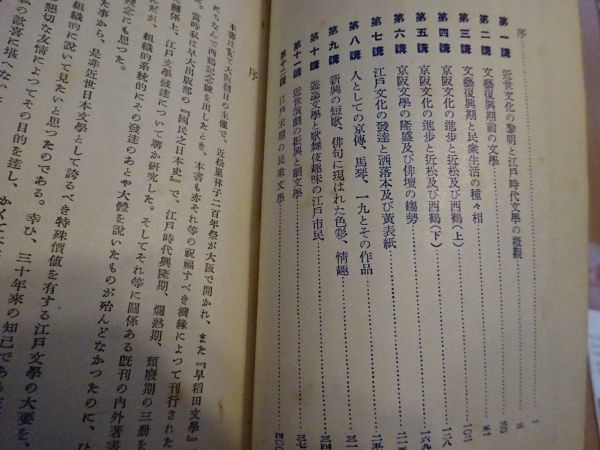 序
第一講 近世文化の黎明と江戸時代文學の概觀
第二講 文藝復興期前の文學
第三講 文藝復興期と民衆生活の種々相
第四講 京阪文化の進步と近松及び西鶴(上)
第五講 京阪文化の進步と近松及び西鶴(下)
第六講 京阪文學の隆盛及び俳壇の趨勢
第七講 江戸文化の發達と洒落本及び黃表紙
第八講 人としての京傳、馬琴、一九とその作品
第九講 新興の短歌、俳句に現はれた色彩、情趣
第十講 遊蕩文學と歌舞伎趣味の江戸市民
第十一講 近世演劇の振興と劇文學
第十二講 江戸末期の民衆文學
序
本書は記て大阪朝日の主催で、近松巢林子二百年祭が大阪で開かれ、また『早稻田文學』
にちなんで西鶴記念號を出したとき、本書も亦それ等の祝福すべき機緣によつて刊行された
當時私は早大出版部の『國民之日本史』で、江戸時代興隆期、爛熟期、頽廢期の三册を
關係上、江戸文學發達について聊か研究した。そしてそれ等に關係ある既刊の內外著書
んだが、組織的系統的にその發達のあとや大體を說いたものが殆んどなかつたのに、ひ
殘念にも思つた。
た事から、是非近世日本文學として誇るべき特殊價値を有する江戸文學の大要を、
組織的に說いて見たいと思つたのである。幸ひ、三十年來の知己である
懇切な友情によつてその目的を達し、かくて
私の歡喜に堪へない